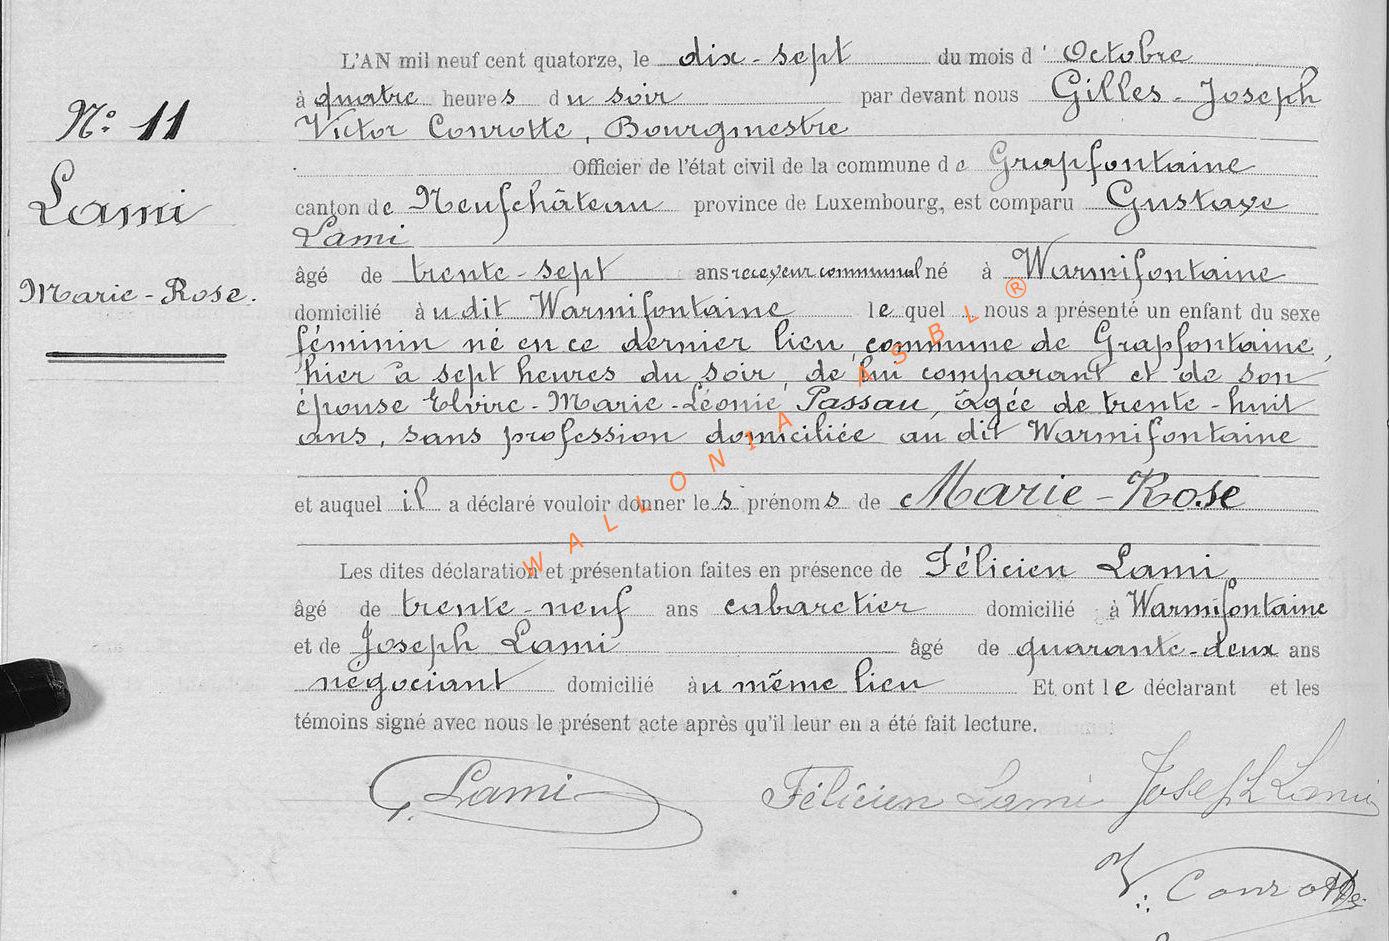 L'AN mil neuf cent quatorze, le dix-sept du mois d'Octobre
à quatre heures du soir par devant nous Gilles-Joseph
N° 11
Victor Conrotte, Bourgmestre
Officier de l'état civil de la commune de Grapfontaine
Lami
canton de Neufchâteau province de Luxembourg, est comparu Gustave
Lami
âgé de trente-sept ans receveur communal né à Warmifontaine
Marie-Rose.
domicilié àu dit Warmifontaine lequel nous a présenté un enfant du sexe
féminin né en ce dernier lieu, commune de Grapfontaine,
hier à sept heures du soir, de lui comparant et de son
épouse Elvire-Marie-Léonie Passau, âgée de trente-huit
ans, sans profession domiciliée au dit Warmifontaine
et auquel il a déclaré vouloir donner les prénoms de Marie-Rose
Les dites déclaration et présentation faites en présence de Félicien Lami
âgé de trente-neuf ans cabaretier domicilié à Warmifontaine
et de Joseph Lami âgé de quarante-deux ans
négociant domicilié àu même lieu Et ont le déclarant et les
témoins signé avec nous le présent acte après qu'il leur en a été fait lecture.
G. Lami Félicien Lami Joseph Lami
V. Conrotte
WALLONIA ASBL ®